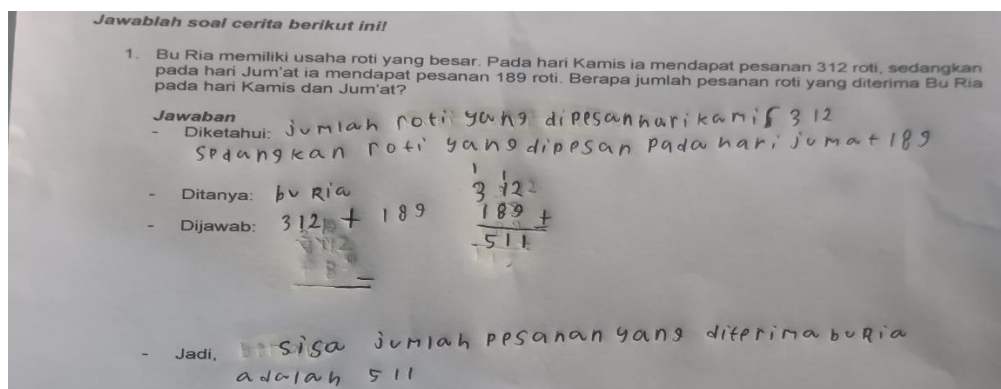 Jawablah soal cerita berikut ini!
1. Bu Ria memiliki usaha roti yang besar. Pada hari Kamis ia mendapat pesanan 312 roti, sedangkan
pada hari Jum'at ia mendapat pesanan 189 roti. Berapa jumlah pesanan roti yang diterima Bu Ria
pada hari Kamis dan Jum'at?
Jawaban
- Diketahui: jumlah roti yang dipesan hari kamis 312
sedangkan roti yang dipesan pada hari jumat 189
- Ditanya: bu Ria
- Dijawab: 312 + 189
1 1
3122
189 +
511
- Jadi, sisa jumlah pesanan yang diterima bu Ria
adalah 511